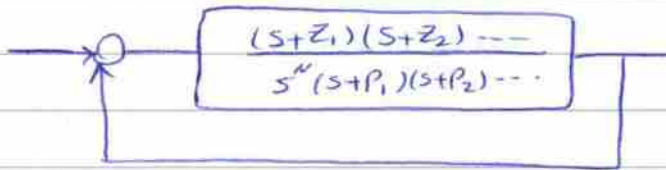 (S+Z₁)(S+Z₂) ----
Sᴺ(S+P₁)(S+P₂)---